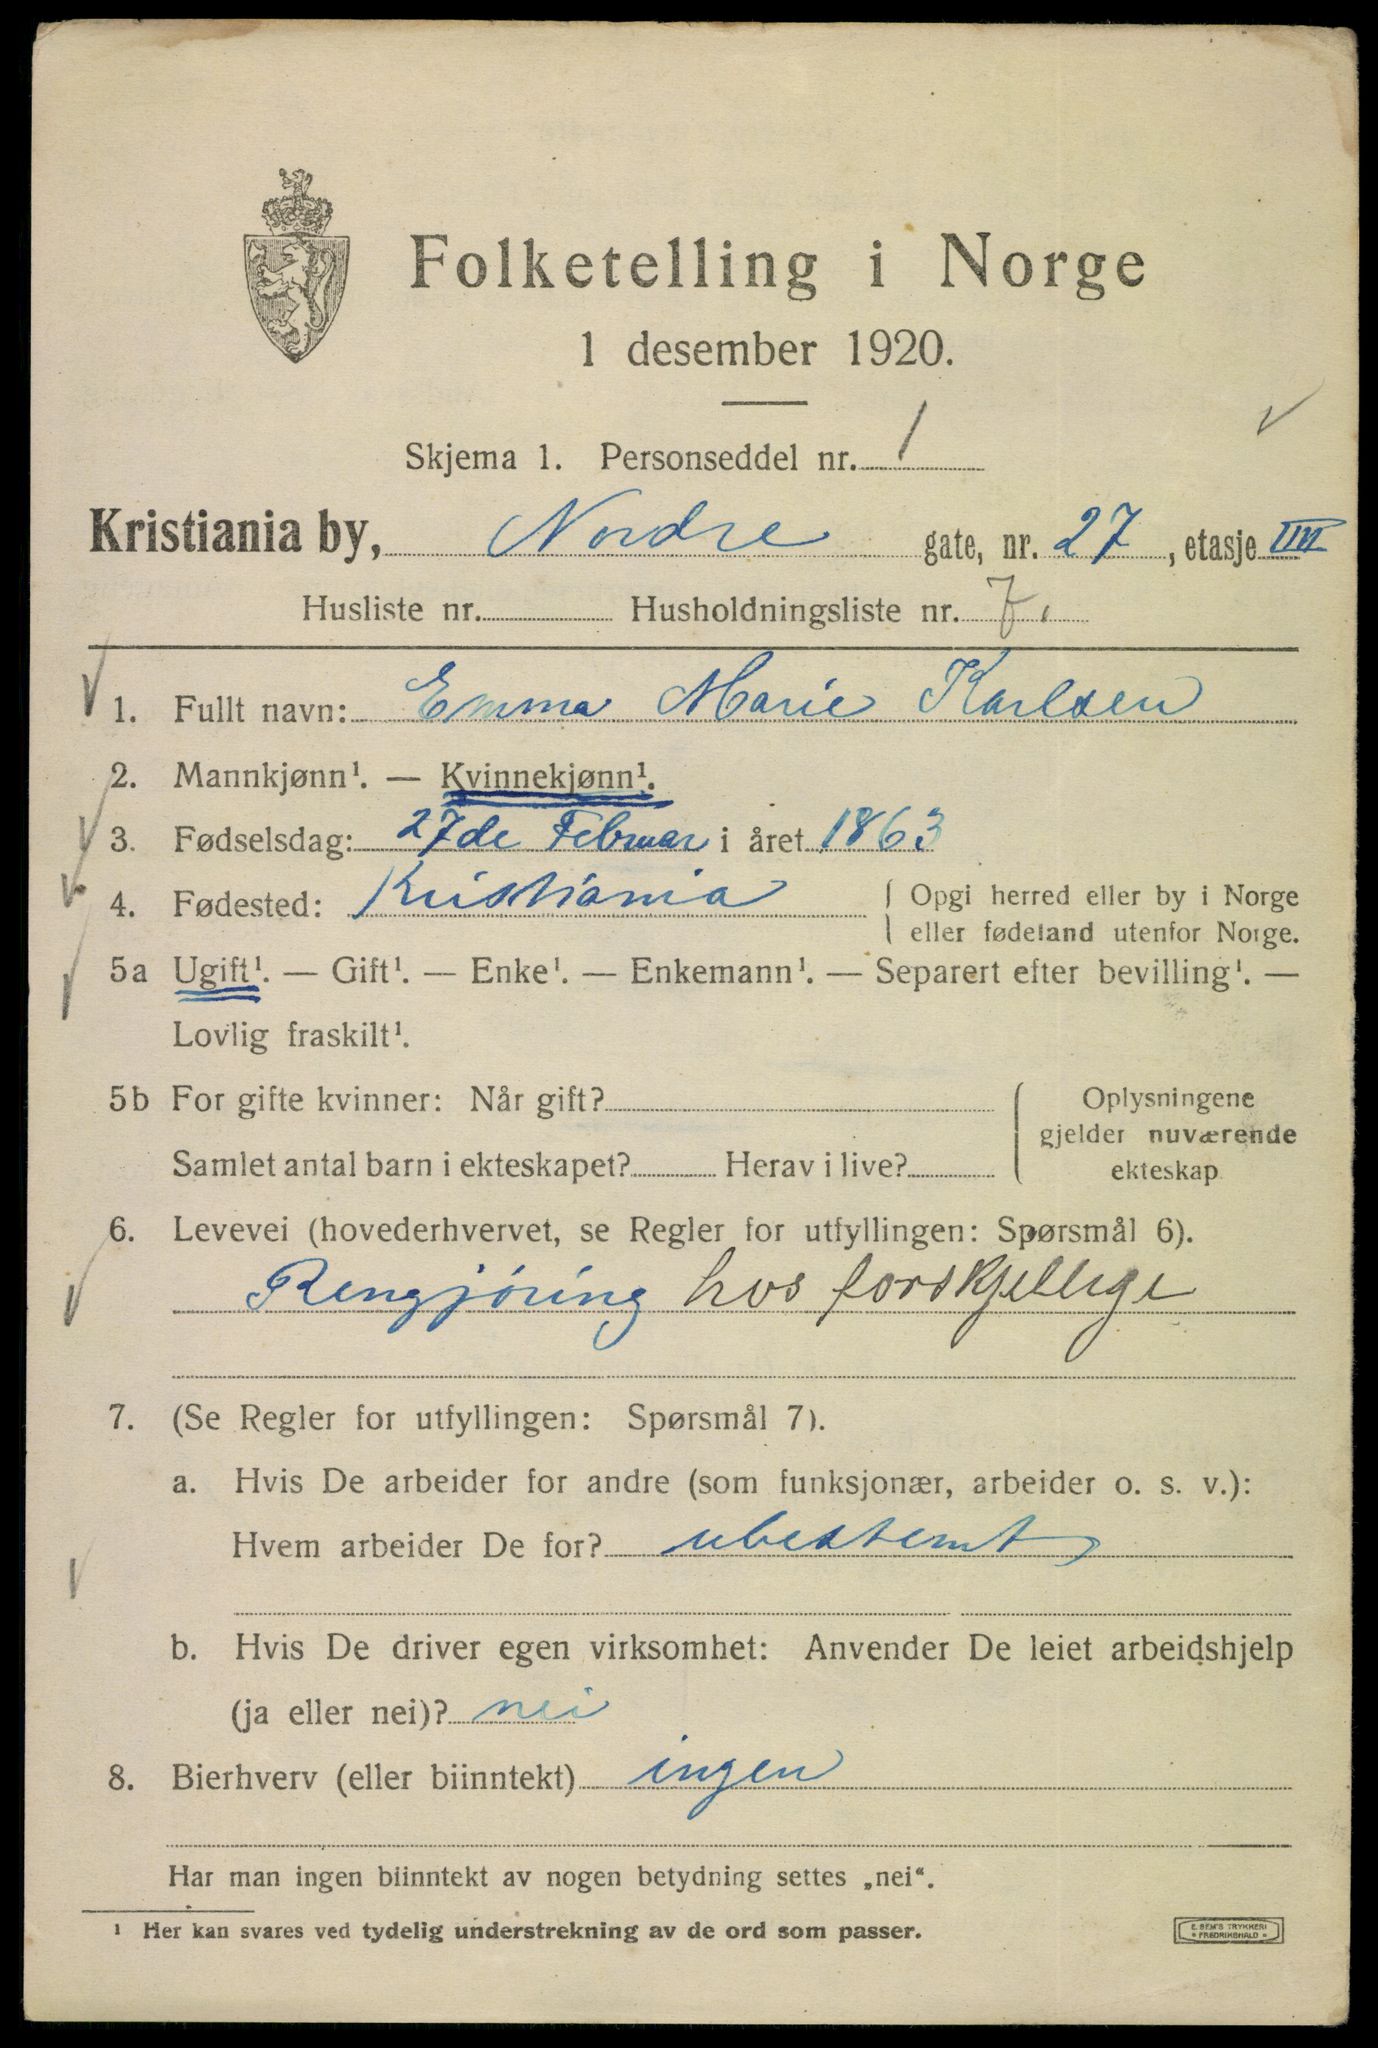 Folketelling i Norge
1 desember 1920.
Skjema 1. Personseddel nr. 1
Kristiania by, Nordre gate, nr. 27, etasje III
Husliste nr. Husholdningsliste nr. 7.
1. Fullt navn: Emma Marie Karlsen
2. Mannkjønn¹. — Kvinnekjønn¹.
3. Fødselsdag: 27de Februar i året 1863
4. Fødested: Kristiania { Opgi herred eller by i Norge
eller fødeland utenfor Norge.
5a Ugift¹. — Gift¹. — Enke¹. — Enkemann¹. — Separert efter bevilling¹. —
Lovlig fraskilt¹.
5b For gifte kvinner: Når gift? { Oplysningene
gjelder nuværende
Samlet antal barn i ekteskapet? Herav i live? ekteskap
6. Levevei (hovederhvervet, se Regler for utfyllingen: Spørsmål 6).
Rengjöring hos forskjellige
7. (Se Regler for utfyllingen: Spørsmål 7).
a. Hvis De arbeider for andre (som funksjonær, arbeider o. s. v.):
Hvem arbeider De for? ubestemt
b. Hvis De driver egen virksomhet: Anvender De leiet arbeidshjelp
(ja eller nei)? nei
8. Bierhverv (eller biinntekt) ingen
Har man ingen biinntekt av nogen betydning settes „nei“.
¹ Her kan svares ved tydelig understrekning av de ord som passer.
E. SEM'S TRYKKERI
* FREDRIKSHALD *